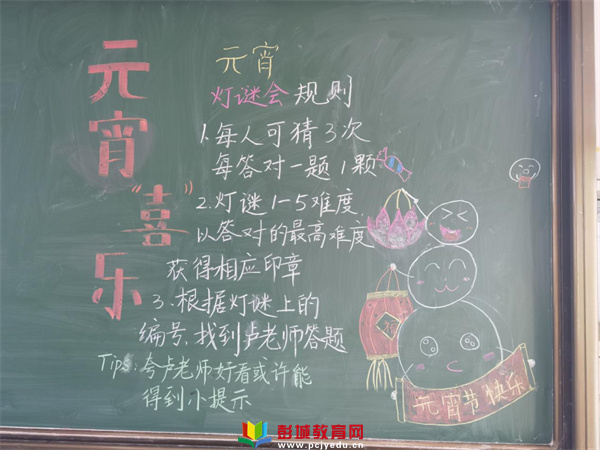 元宵"喜"乐
元宵
灯谜会 规则
1.每人可猜3次
每答对一题1颗
2.灯谜1-5难度,
以答对的最高难度
获得相应印章
3.根据灯谜上的
编号,找到卢老师答题
Tips:夸卢老师好看或许能
得到小提示
福
元宵节快乐
彭城教育网
www.pcjyedu.cn